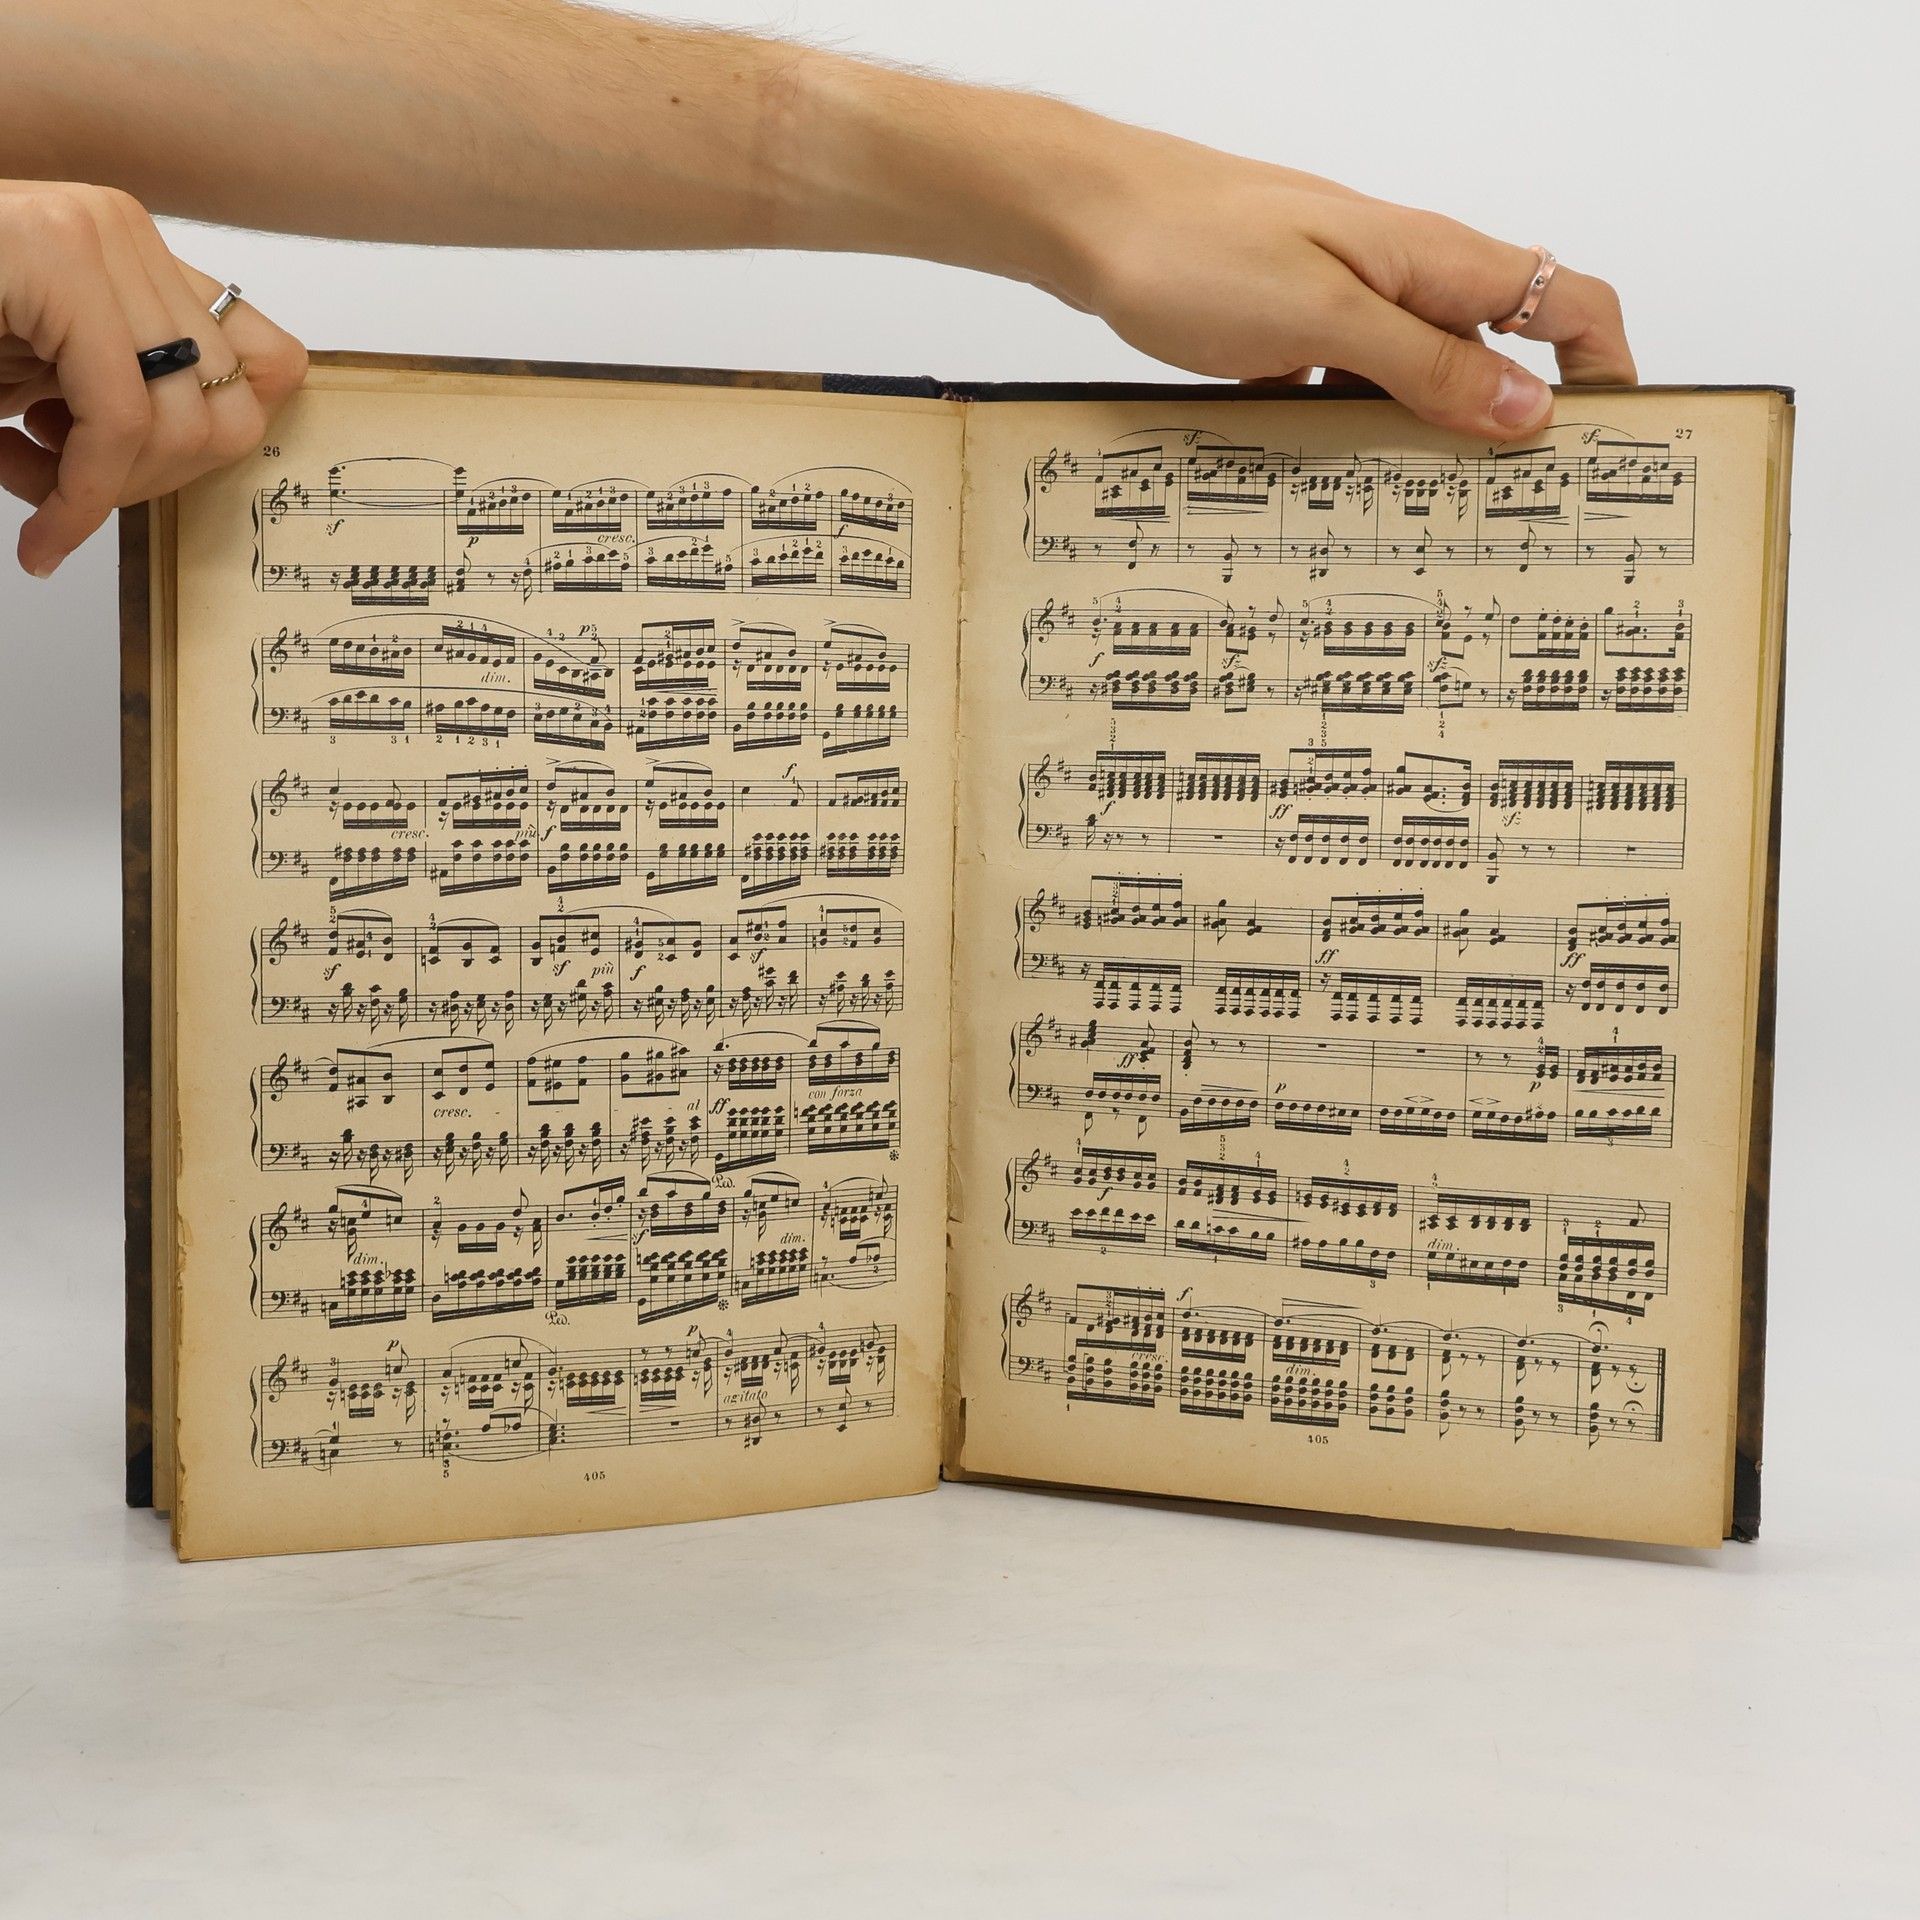 26
sf
p
cresc.
f
p
dim.
f
cresc.
più f
sf
sf
più
f
sf
cresc.
al
ff
con forza
Ped.
dim.
f
dim.
Ped.
p
p
agitato
405
27
sf
sf
f
sf
sf
f
ff
sf
ff
ff
ff
p
p
f
dim.
f
cresc.
dim.
405